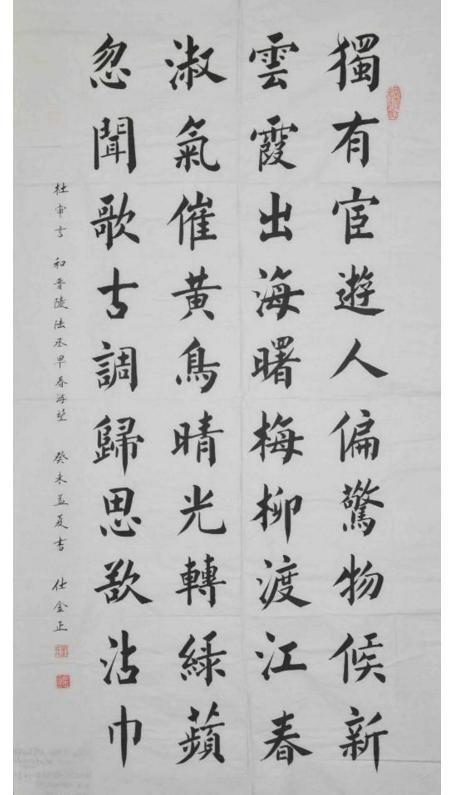 獨有宦遊人偏驚物候新
雲霞出海曙梅柳渡江春
淑氣催黃鳥晴光轉綠蘋
忽聞歌古調歸思欲沾巾
杜审言 和晋陵陆丞早春游望 癸未孟夏書 仕金正